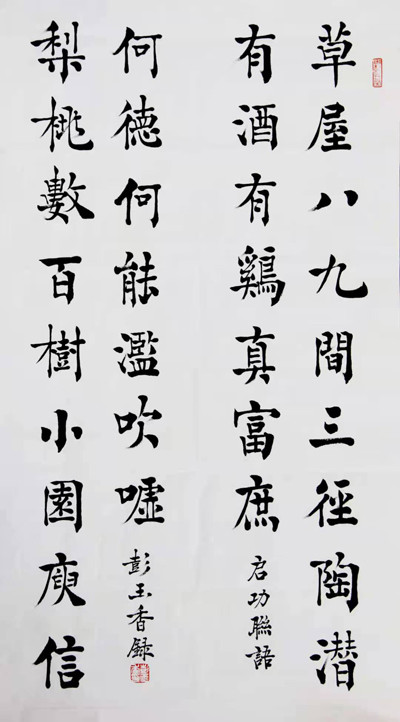 草屋八九間三徑陶潜
有酒有鷄真富庶
启功聯語
梨桃數百樹小園庾信
何德何能濫吹嘘
彭玉香録